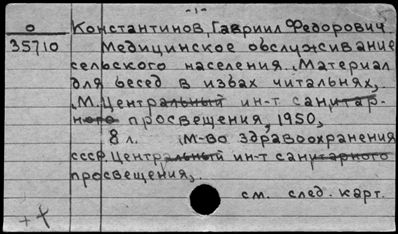 -1-
О Константинов, Гавриил Федорович
35710 Медицинское обслуживание
сельского населения. Материал
для бесед в избах читальнях,
М. Центральный ин-т санитар-
ного просвещения, 1950,
8 л. М-во здравоохранения
СССР Центральный ин-т санитарного
просвещения,.
см. след. карт.